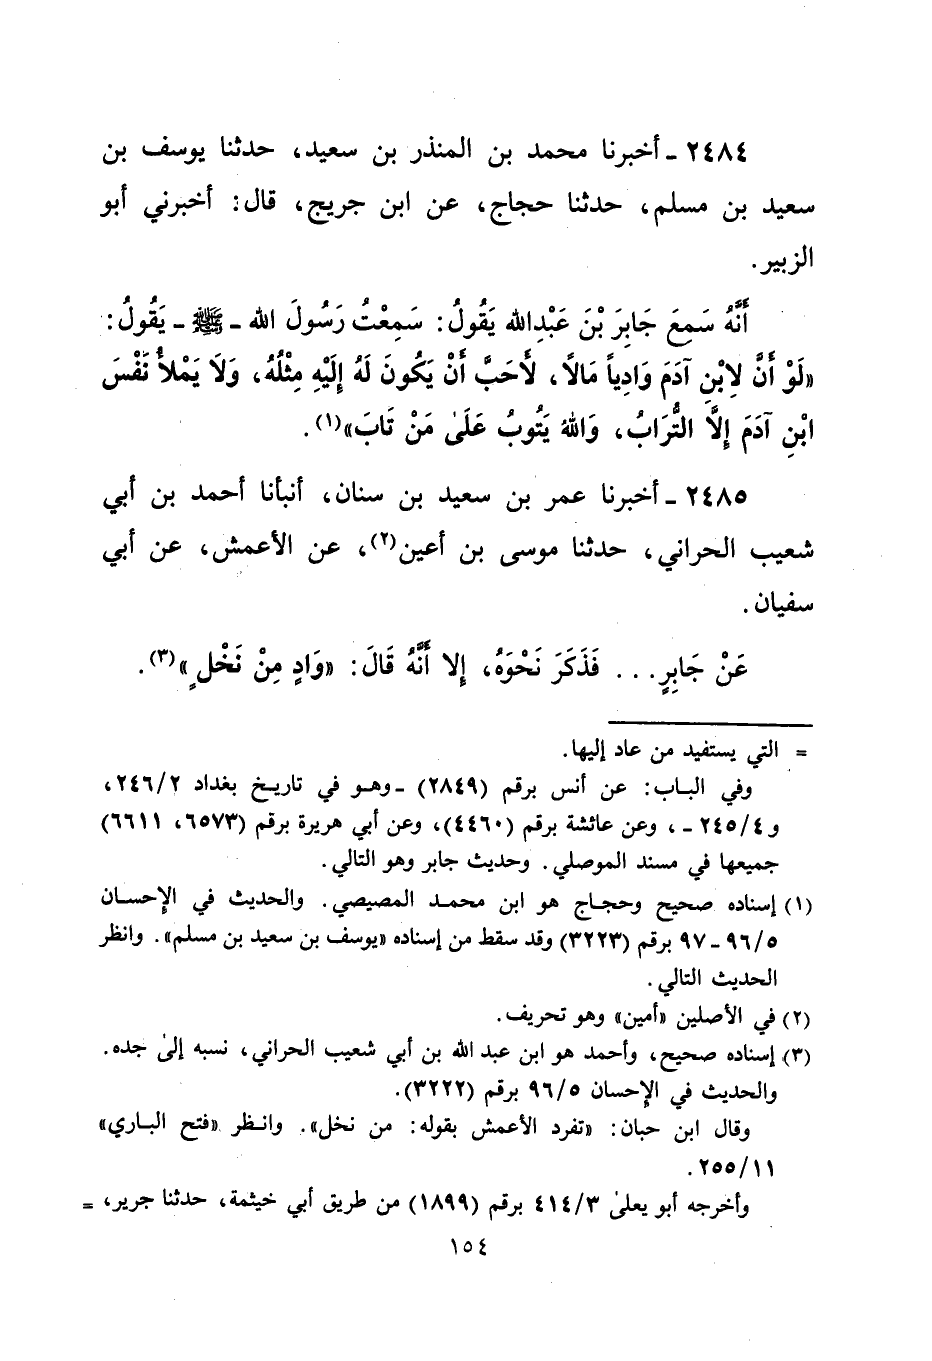 ٢٤٨٤ - أخبرنا محمد بن المنذر بن سعيد، حدثنا يوسف بن
سعيد بن مسلم، حدثنا حجاج، عن ابن جريج، قال: أخبرني أبو
الزبير.
أَنَّهُ سَمِعَ جَابِرَ بْنَ عَبْدِالله يَقُولُ: سَمِعْتُ رَسُولَ الله - ﷺ - يَقُولُ:
«لَوْ أَنَّ لِابْنِ آدَمَ وَادِياً مَالًا، لَأَحَبَّ أَنْ يَكُونَ لَهُ إِلَيْهِ مِثْلُهُ، وَلَا يَمْلأُ نَفْسَ
ابْنِ آدَمَ إِلَّا التُّرَابُ، وَاللهُ يَتُوبُ عَلَىٰ مَنْ تَابَ»(١).
٢٤٨٥ - أخبرنا عمر بن سعيد بن سنان، أنبأنا أحمد بن أبي
شعيب الحراني، حدثنا موسى بن أعين(٢)، عن الأعمش، عن أبي
سفيان.
عَنْ جَابِرٍ... فَذَكَرَ نَحْوَهُ، إلا أَنَّهُ قَالَ: «وَادٍ مِنْ نَخْلٍ»(٣).
= التي يستفيد من عاد إليها.
وفي الباب: عن أنس برقم (٢٨٤٩) - وهو في تاريخ بغداد ٢٤٦/٢،
و ٢٤٥/٤ -، وعن عائشة برقم (٤٤٦٠)، وعن أبي هريرة برقم (٦٥٧٣، ٦٦١١)
جميعها في مسند الموصلي. وحديث جابر وهو التالي.
(١) إسناده صحيح وحجاج هو ابن محمد المصيصي. والحديث في الإحسان
٩٦/٥ - ٩٧ برقم (٣٢٢٣) وقد سقط من إسناده «يوسف بن سعيد بن مسلم». وانظر
الحديث التالي.
(٢) في الأصلين «أمين» وهو تحريف.
(٣) إسناده صحيح، وأحمد هو ابن عبد الله بن أبي شعيب الحراني، نسبه إلىٰ جده.
والحديث في الإحسان ٩٦/٥ برقم (٣٢٢٢).
وقال ابن حبان: «تفرد الأعمش بقوله: من نخل». وانظر «فتح الباري»
٢٥٥/١١.
وأخرجه أبو يعلىٰ ٤١٤/٣ برقم (١٨٩٩) من طريق أبي خيثمة، حدثنا جرير، =
١٥٤